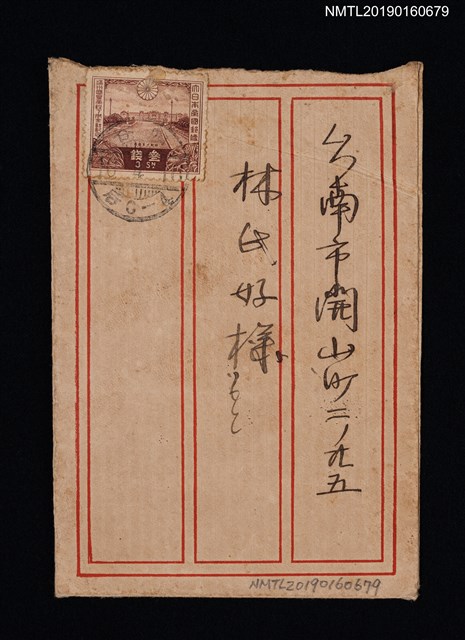 NMTL20190160679
台南市開山町二ノ九五
林氏好様
大日本帝國郵便
参錢
3 Sn
NMTL20190160679